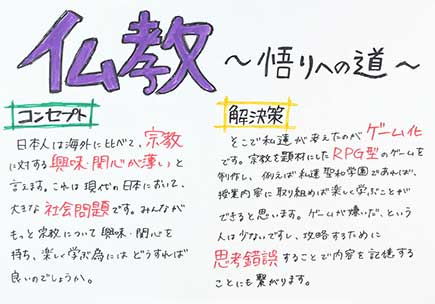 仏教 〜悟りへの道〜
コンセプト
日本人は海外に比べて、宗教
に対する興味・関心が薄いと
言えます。これは現代の日本において、
大きな社会問題です。みんなが
もっと宗教について興味・関心を
持ち、楽しく学ぶ為には どうすれば
良いのでしょうか。
解決策
そこで私達が考えたのが ゲーム化
です。宗教を題材にした RPG型のゲームを
制作し、例えば私達 聖和学園であれば、
授業内容に取り組めば楽しく学ぶことが
できると思います。ゲームが嫌いだ、という
人は少ないですし、攻略するために
思考錯誤することで内容を記憶する
ことにも繋がります。